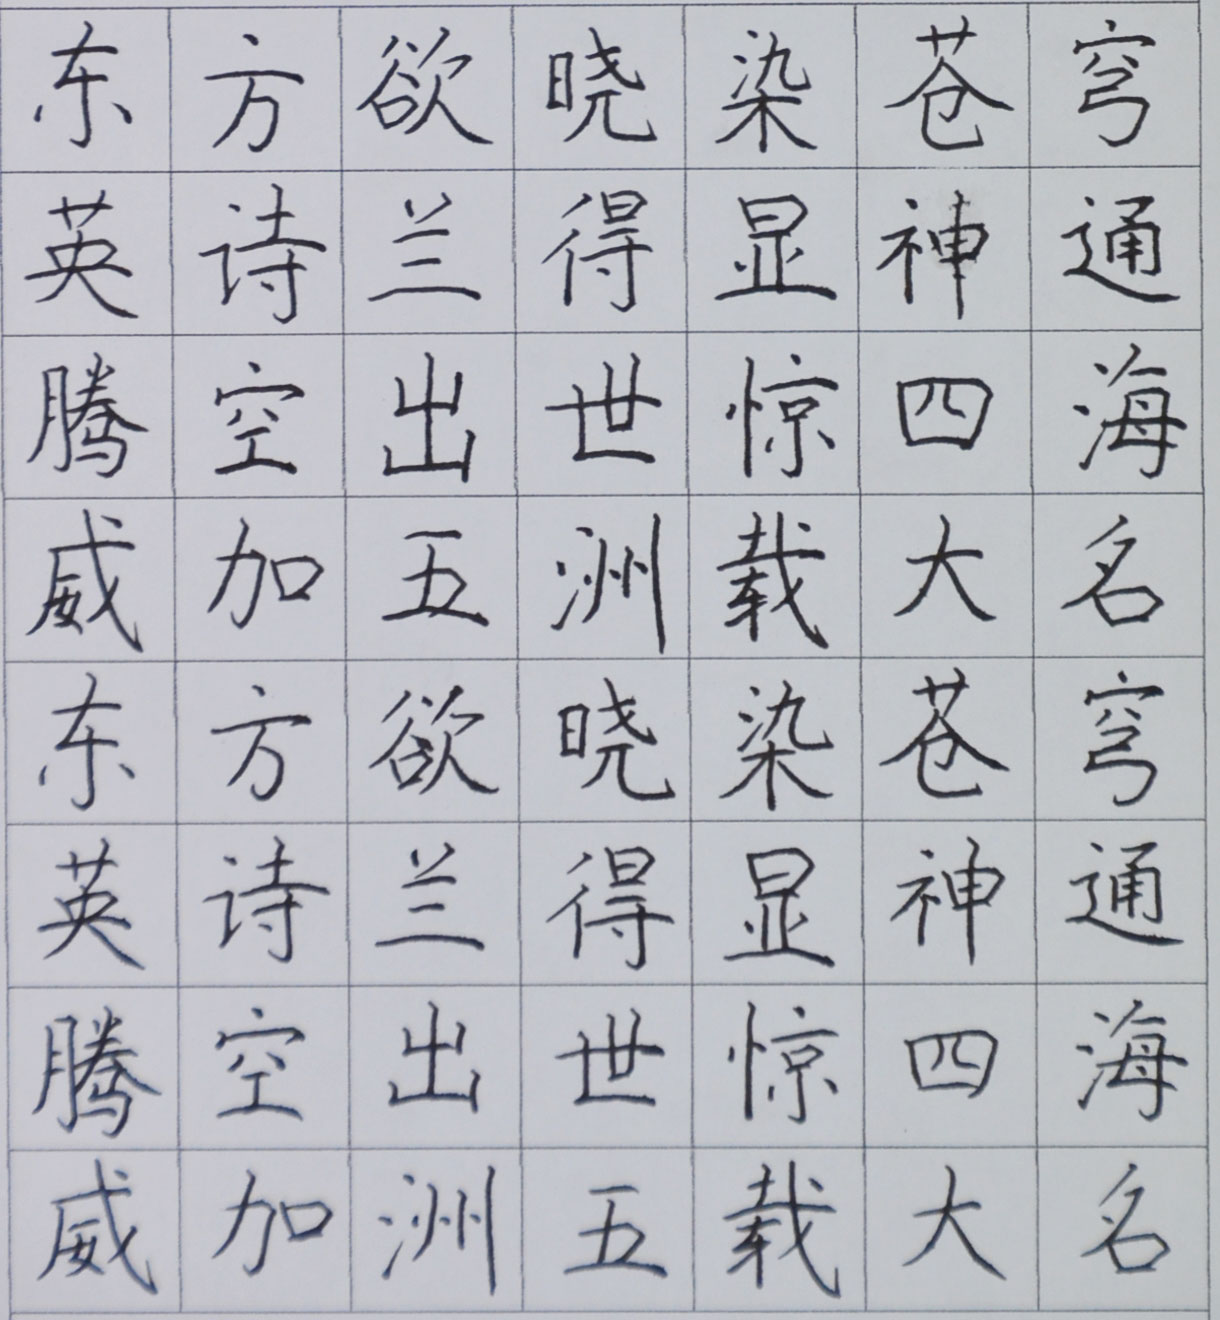 东方欲晓染苍穹
英诗兰得显神通
腾空出世惊四海
威加五洲载大名
东方欲晓染苍穹
英诗兰得显神通
腾空出世惊四海
威加洲五载大名